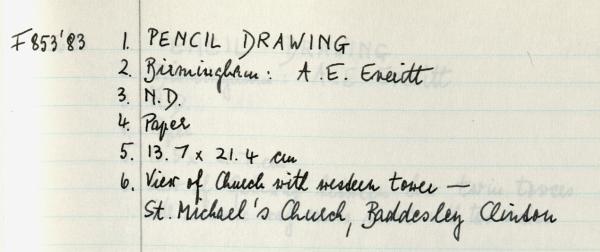 F853'83 1. PENCIL DRAWING
2. Birmingham: A.E. Everitt
3. N.D.
4. Paper
5. 13.7 x 21.4 cm
6. View of Church with western tower —
St. Michael's Church, Baddesley Clinton